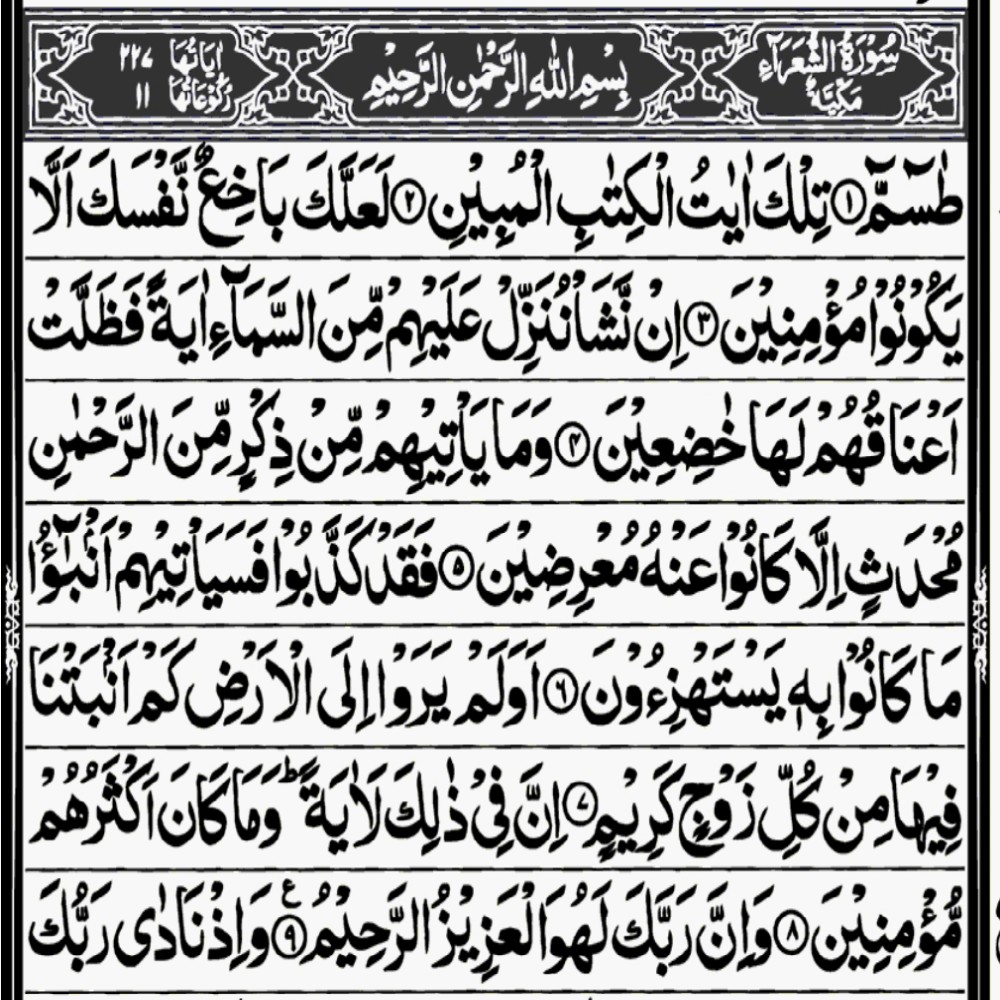 سُوْرَةُ الشُّعَرَآءِ مَكِّيَّةٌ بِسْمِ اللّٰهِ الرَّحْمٰنِ الرَّحِيْمِ اٰيَاتُهَا ٢٢٧ رُكُوْعَاتُهَا ١١
طٰسٓمّٓ ﴿١﴾ تِلْكَ اٰيٰتُ الْكِتٰبِ الْمُبِيْنِ ﴿٢﴾ لَعَلَّكَ بَاخِعٌ نَّفْسَكَ اَلَّا
يَكُوْنُوْا مُؤْمِنِيْنَ ﴿٣﴾ اِنْ نَّشَاْ نُنَزِّلْ عَلَيْهِمْ مِّنَ السَّمَآءِ اٰيَةً فَظَلَّتْ
اَعْنَاقُهُمْ لَهَا خٰضِعِيْنَ ﴿٤﴾ وَمَا يَاْتِيْهِمْ مِّنْ ذِكْرٍ مِّنَ الرَّحْمٰنِ
مُحْدَثٍ اِلَّا كَانُوْا عَنْهُ مُعْرِضِيْنَ ﴿٥﴾ فَقَدْ كَذَّبُوْا فَسَيَاْتِيْهِمْ اَنْۢبٰٓؤُا
مَا كَانُوْا بِهٖ يَسْتَهْزِءُوْنَ ﴿٦﴾ اَوَلَمْ يَرَوْا اِلَى الْاَرْضِ كَمْ اَنْۢبَتْنَا
فِيْهَا مِنْ كُلِّ زَوْجٍ كَرِيْمٍ ﴿٧﴾ اِنَّ فِيْ ذٰلِكَ لَاٰيَةً ؕ وَمَا كَانَ اَكْثَرُهُمْ
مُّؤْمِنِيْنَ ﴿٨﴾ وَاِنَّ رَبَّكَ لَهُوَ الْعَزِيْزُ الرَّحِيْمُ ﴿٩﴾ ع وَاِذْ نَادٰى رَبُّكَ